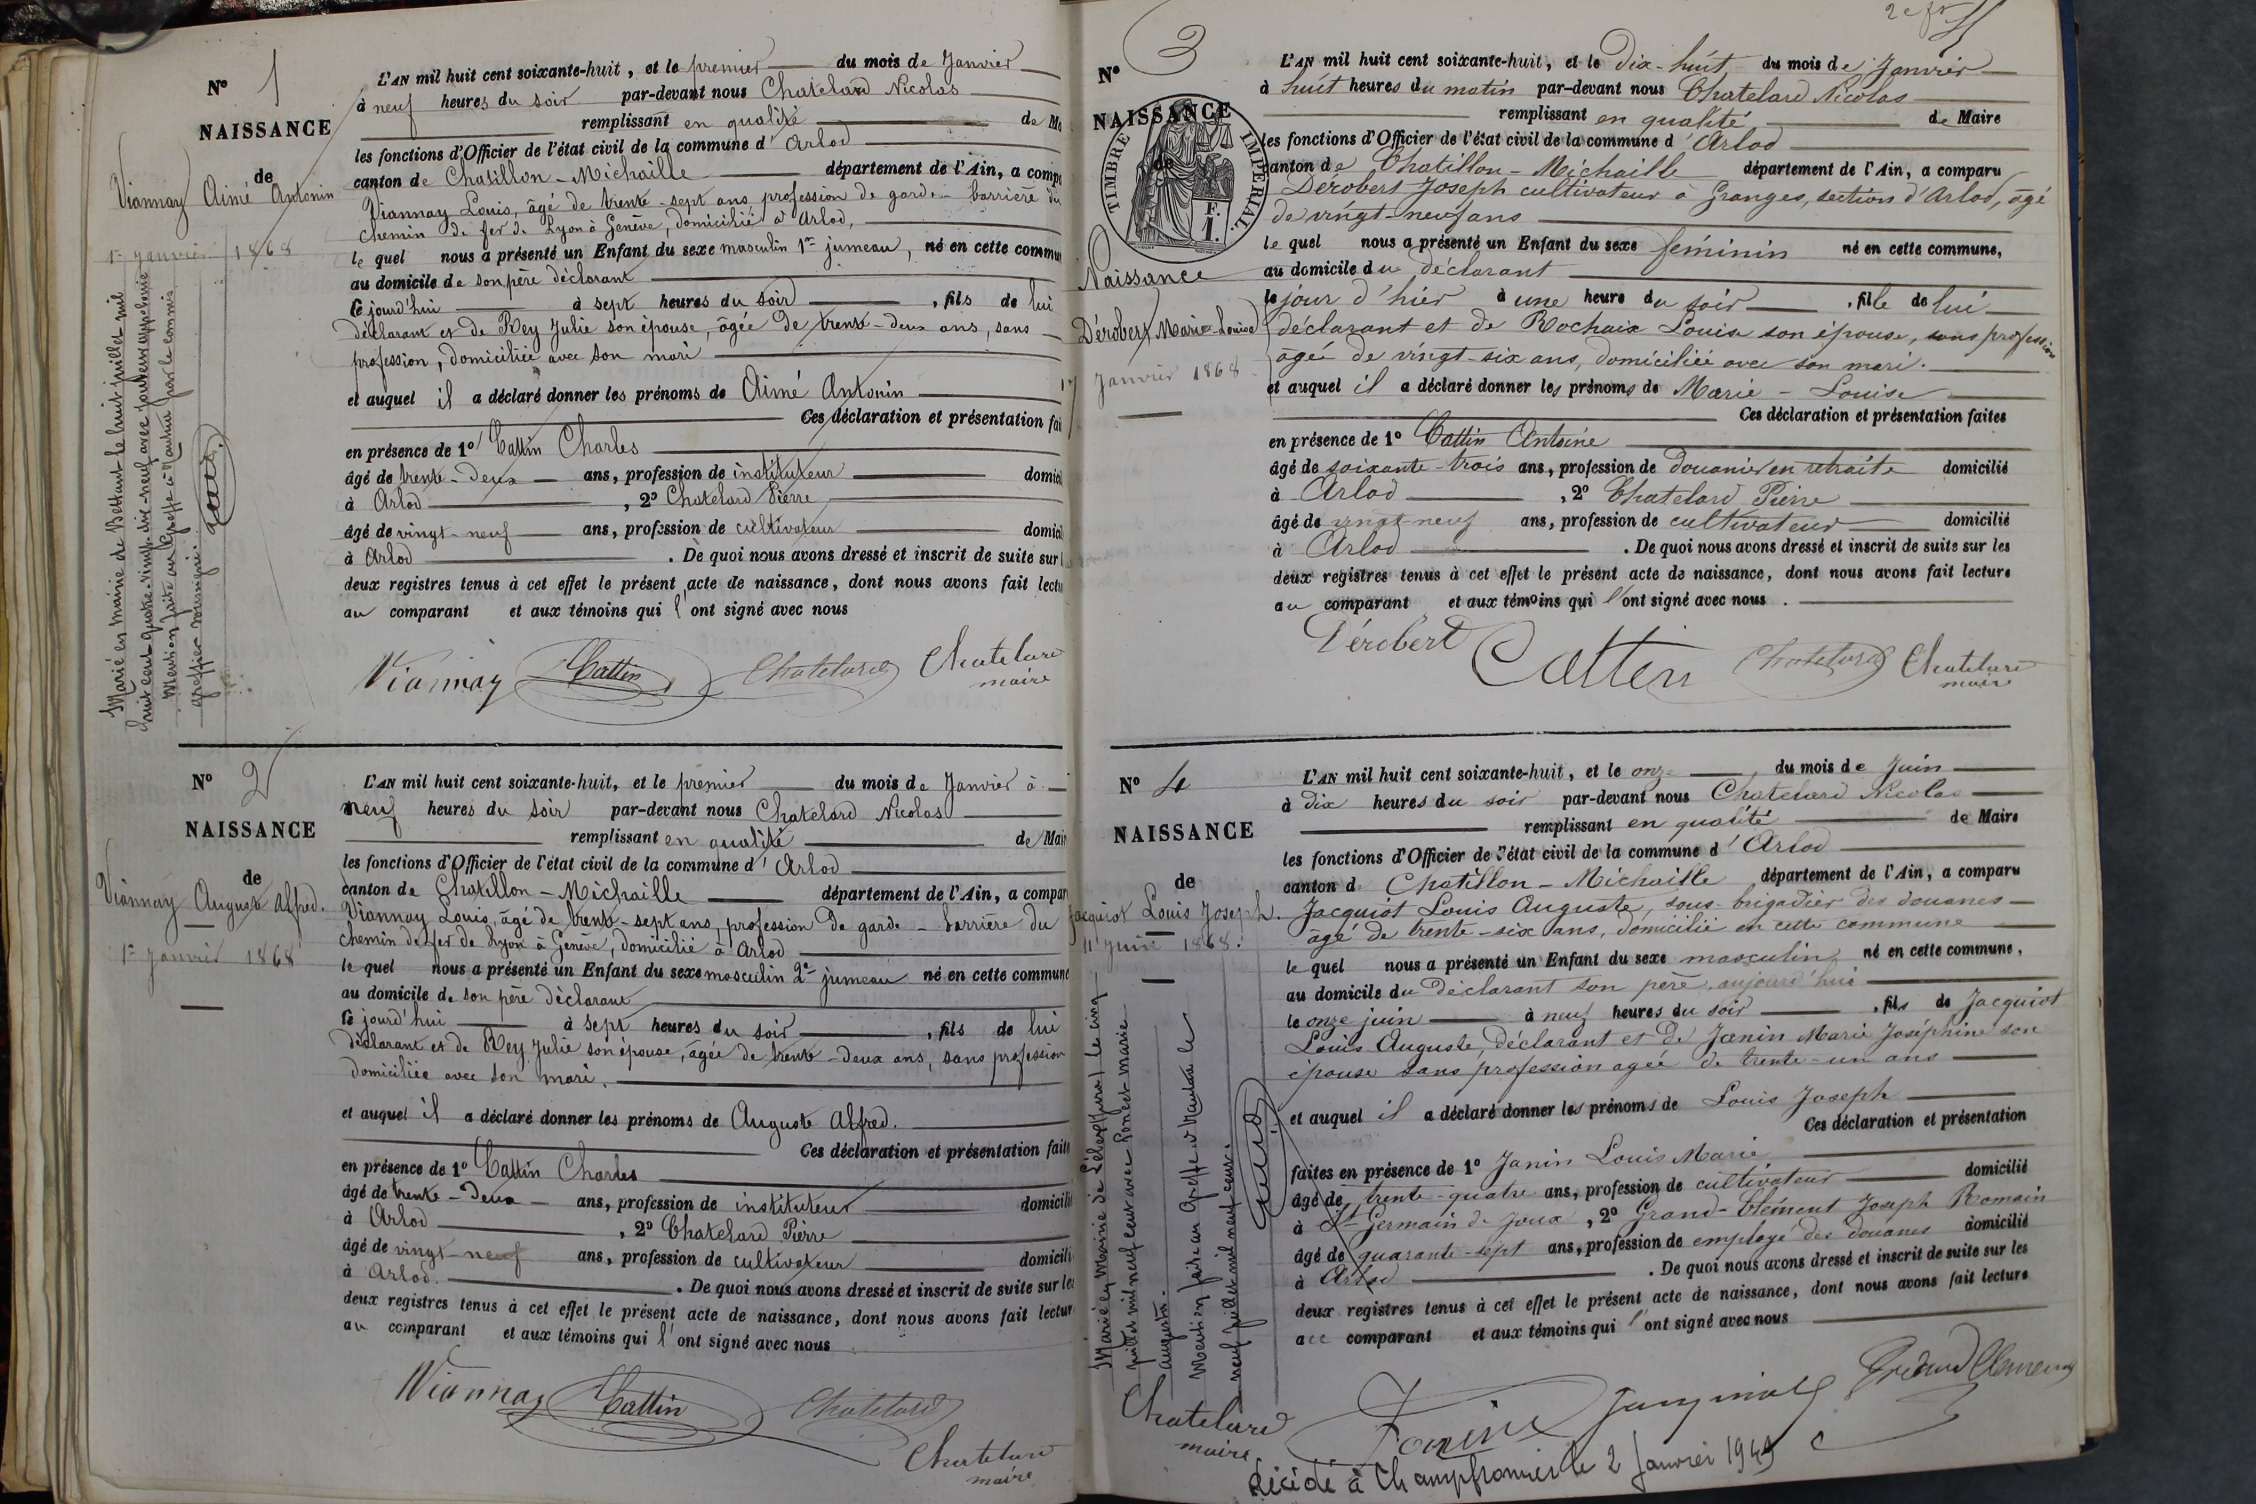 Nº 1
NAISSANCE
de
Viannay Aimé Antonin
1er Janvier 1868
Marié en mairie de Bettant le huit juillet mil
huit cent quatre-vingt-dix-neuf avec
Mention faite au Greffe à Nantua par le commis
greffier soussigné.
L'AN mil huit cent soixante-huit, et le premier du mois de Janvier
à neuf heures du soir par-devant nous Chatelard Nicolas
remplissant en qualité de Ma
les fonctions d'Officier de l'état civil de la commune d' Arlod
canton de Chatillon-Michaille département de l'Ain, a compa
Viannay Louis, âgé de trente-sept ans profession de garde-barrière du
chemin de fer de Lyon à Genève, domicilié à Arlod,
le quel nous a présenté un Enfant du sexe masculin 1er jumeau, né en cette commun
au domicile de son père déclarant
ce jourd'hui à sept heures du soir, fils de lui
déclarant et de Rey Julie son épouse, âgée de trente-deux ans, sans
profession, domiciliée avec son mari
et auquel il a déclaré donner les prénoms de Aimé Antonin
Ces déclaration et présentation fai
en présence de 1º Cattin Charles
âgé de trente-deux ans, profession de instituteur domicil
à Arlod, 2º Chatelard Pierre
âgé de vingt-neuf ans, profession de cultivateur domicil
à Arlod. De quoi nous avons dressé et inscrit de suite sur l
deux registres tenus à cet effet le présent acte de naissance, dont nous avons fait lectu
au comparant et aux témoins qui l'ont signé avec nous
Viannay Cattin Chatelard Chatelard
maire
Nº 2
NAISSANCE
de
Viannay Auguste Alfred.
1er Janvier 1868
L'AN mil huit cent soixante-huit, et le premier du mois de Janvier à
neuf heures du soir par-devant nous Chatelard Nicolas
remplissant en qualité de Mair
les fonctions d'Officier de l'état civil de la commune d' Arlod
canton de Chatillon-Michaille département de l'Ain, a compar
Viannay Louis, âgé de trente-sept ans, profession de garde-barrière du
chemin de fer de Lyon à Genève, domicilié à Arlod
le quel nous a présenté un Enfant du sexe masculin 2e jumeau né en cette commune
au domicile de son père déclarant
ce jourd'hui à sept heures du soir, fils de lui
déclarant et de Rey Julie son épouse, âgée de trente-deux ans, sans profession
domiciliée avec son mari.
et auquel il a déclaré donner les prénoms de Auguste Alfred.
Ces déclaration et présentation faite
en présence de 1º Cattin Charles
âgé de trente-deux ans, profession de instituteur domicilié
à Arlod, 2º Chatelard Pierre
âgé de vingt-neuf ans, profession de cultivateur domicili
à Arlod. De quoi nous avons dressé et inscrit de suite sur les
deux registres tenus à cet effet le présent acte de naissance, dont nous avons fait lectur
au comparant et aux témoins qui l'ont signé avec nous
Viannay Cattin Chatelard
Chatelard
maire
Nº 3
NAISSANCE
de
TIMBRE IMPÉRIAL.
F.
1.
Naissance
Dérobert Marie-Louise
17 Janvier 1868
L'AN mil huit cent soixante-huit, et le dix-huit du mois de Janvier
à huit heures du matin par-devant nous Chatelard Nicolas
remplissant en qualité de Maire
les fonctions d'Officier de l'état civil de la commune d' Arlod
canton de Chatillon-Michaille département de l'Ain, a comparu
Dérobert Joseph cultivateur à Granges, section d'Arlod, âgé
de vingt-neuf ans
le quel nous a présenté un Enfant du sexe féminin né en cette commune,
au domicile du déclarant
le jour d'hier à une heure du soir, fille de lui
déclarant et de Rochaix Louise son épouse, sans profession
âgée de vingt-six ans, domiciliée avec son mari.
et auquel il a déclaré donner les prénoms de Marie-Louise
Ces déclaration et présentation faites
en présence de 1º Cattin Antoine
âgé de soixante-trois ans, profession de douanier en retraite domicilié
à Arlod, 2º Chatelard Pierre
âgé de vingt-neuf ans, profession de cultivateur domicilié
à Arlod. De quoi nous avons dressé et inscrit de suite sur les
deux registres tenus à cet effet le présent acte de naissance, dont nous avons fait lecture
au comparant et aux témoins qui l'ont signé avec nous.
Dérobert Cattin Chatelard Chatelard
maire
Nº 4
NAISSANCE
de
Jacquiot Louis Joseph.
11 Juin 1868.
Marié en mairie de (Jura) le cinq
juillet mil neuf cent avec Poncet Marie
augustine.
Mention faite au Greffe à Nantua le
neuf juillet mil neuf cent.
L'AN mil huit cent soixante-huit, et le onze du mois de Juin
à dix heures du soir par-devant nous Chatelard Nicolas
remplissant en qualité de Maire
les fonctions d'Officier de l'état civil de la commune d' Arlod
canton d Chatillon-Michaille département de l'Ain, a comparu
Jacquiot Louis Auguste, sous-brigadier des douanes
âgé de trente-six ans, domicilié en cette commune
le quel nous a présenté un Enfant du sexe masculin né en cette commune,
au domicile du déclarant son père aujourd'hui
le onze juin à neuf heures du soir, fils de Jacquiot
Louis Auguste, déclarant et de Janin Marie Joséphine son
épouse sans profession agée de trente-un ans
et auquel il a déclaré donner les prénoms de Louis Joseph
Ces déclaration et présentation
faites en présence de 1º Janin Louis Marie
âgé de trente-quatre ans, profession de cultivateur domicilié
à St Germain de Joux, 2º Grand-Clément Joseph Romain
âgé de quarante-sept ans, profession de employé des douanes domicilié
à Arlod. De quoi nous avons dressé et inscrit de suite sur les
deux registres tenus à cet effet le présent acte de naissance, dont nous avons fait lecture
au comparant et aux témoins qui l'ont signé avec nous
Chatelard
maire
Janin Jacquiot Grand Clément
Décidé à Champfromier le 2 Janvier 1949